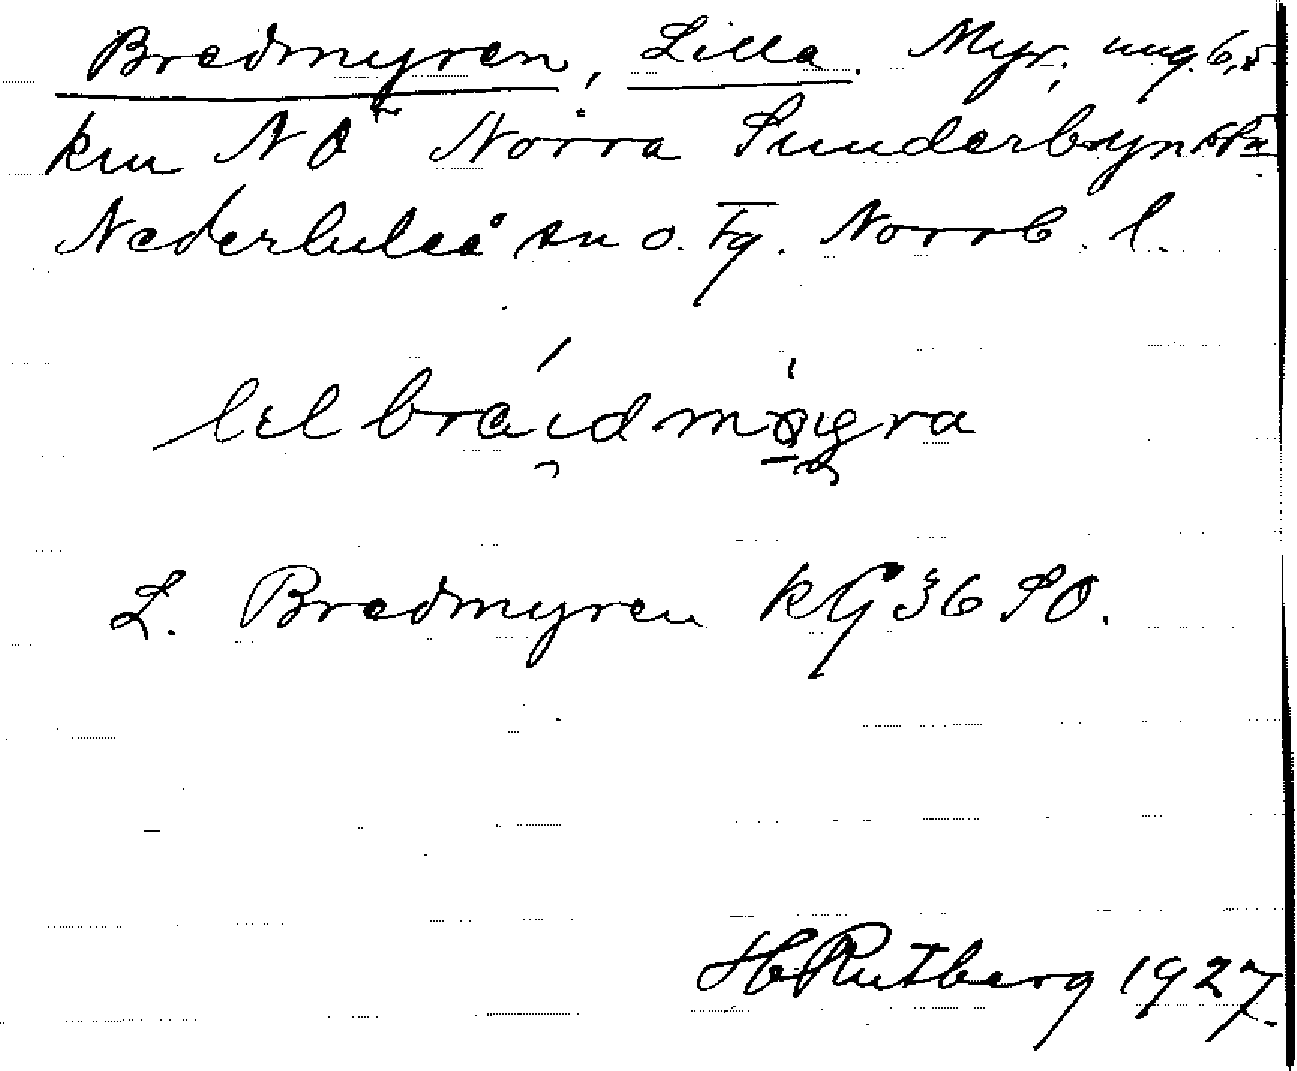 Bredmyren, Lilla. Myr, ung. 6,5
km NO Norra Sunderbyn
Nederluleå sn o. tg. Norrb. l.
L. Bredmyren kG 36 SO.
H Rutberg 1927.